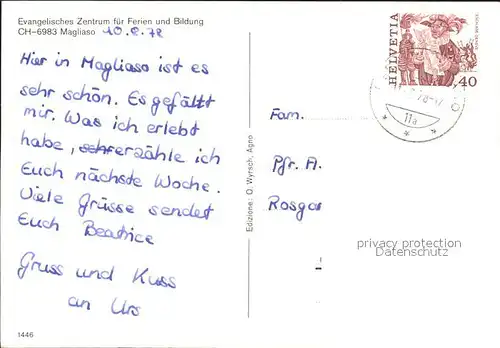 Evangelisches Zentrum für Ferien und Bildung
CH-6983 Magliaso 10.8.78
Hier in Magliaso ist es
sehr schön. Es gefällt
mir. Was ich erlebt
habe, erzähle ich
Euch nächste Woche.
Viele Grüsse sendet
Euch Beatrice
Gruss und Kuss
an Urs
1446
Edizione: O. Wyrsch, Agno
HELVETIA
40
11a
Fam.
Pfr. A.
Rosga
privacy protection
Datenschutz